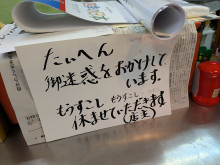 たいへん
御迷惑をおかけして
います。
もうすこし もうすこし
休ませていただきます
(店主)